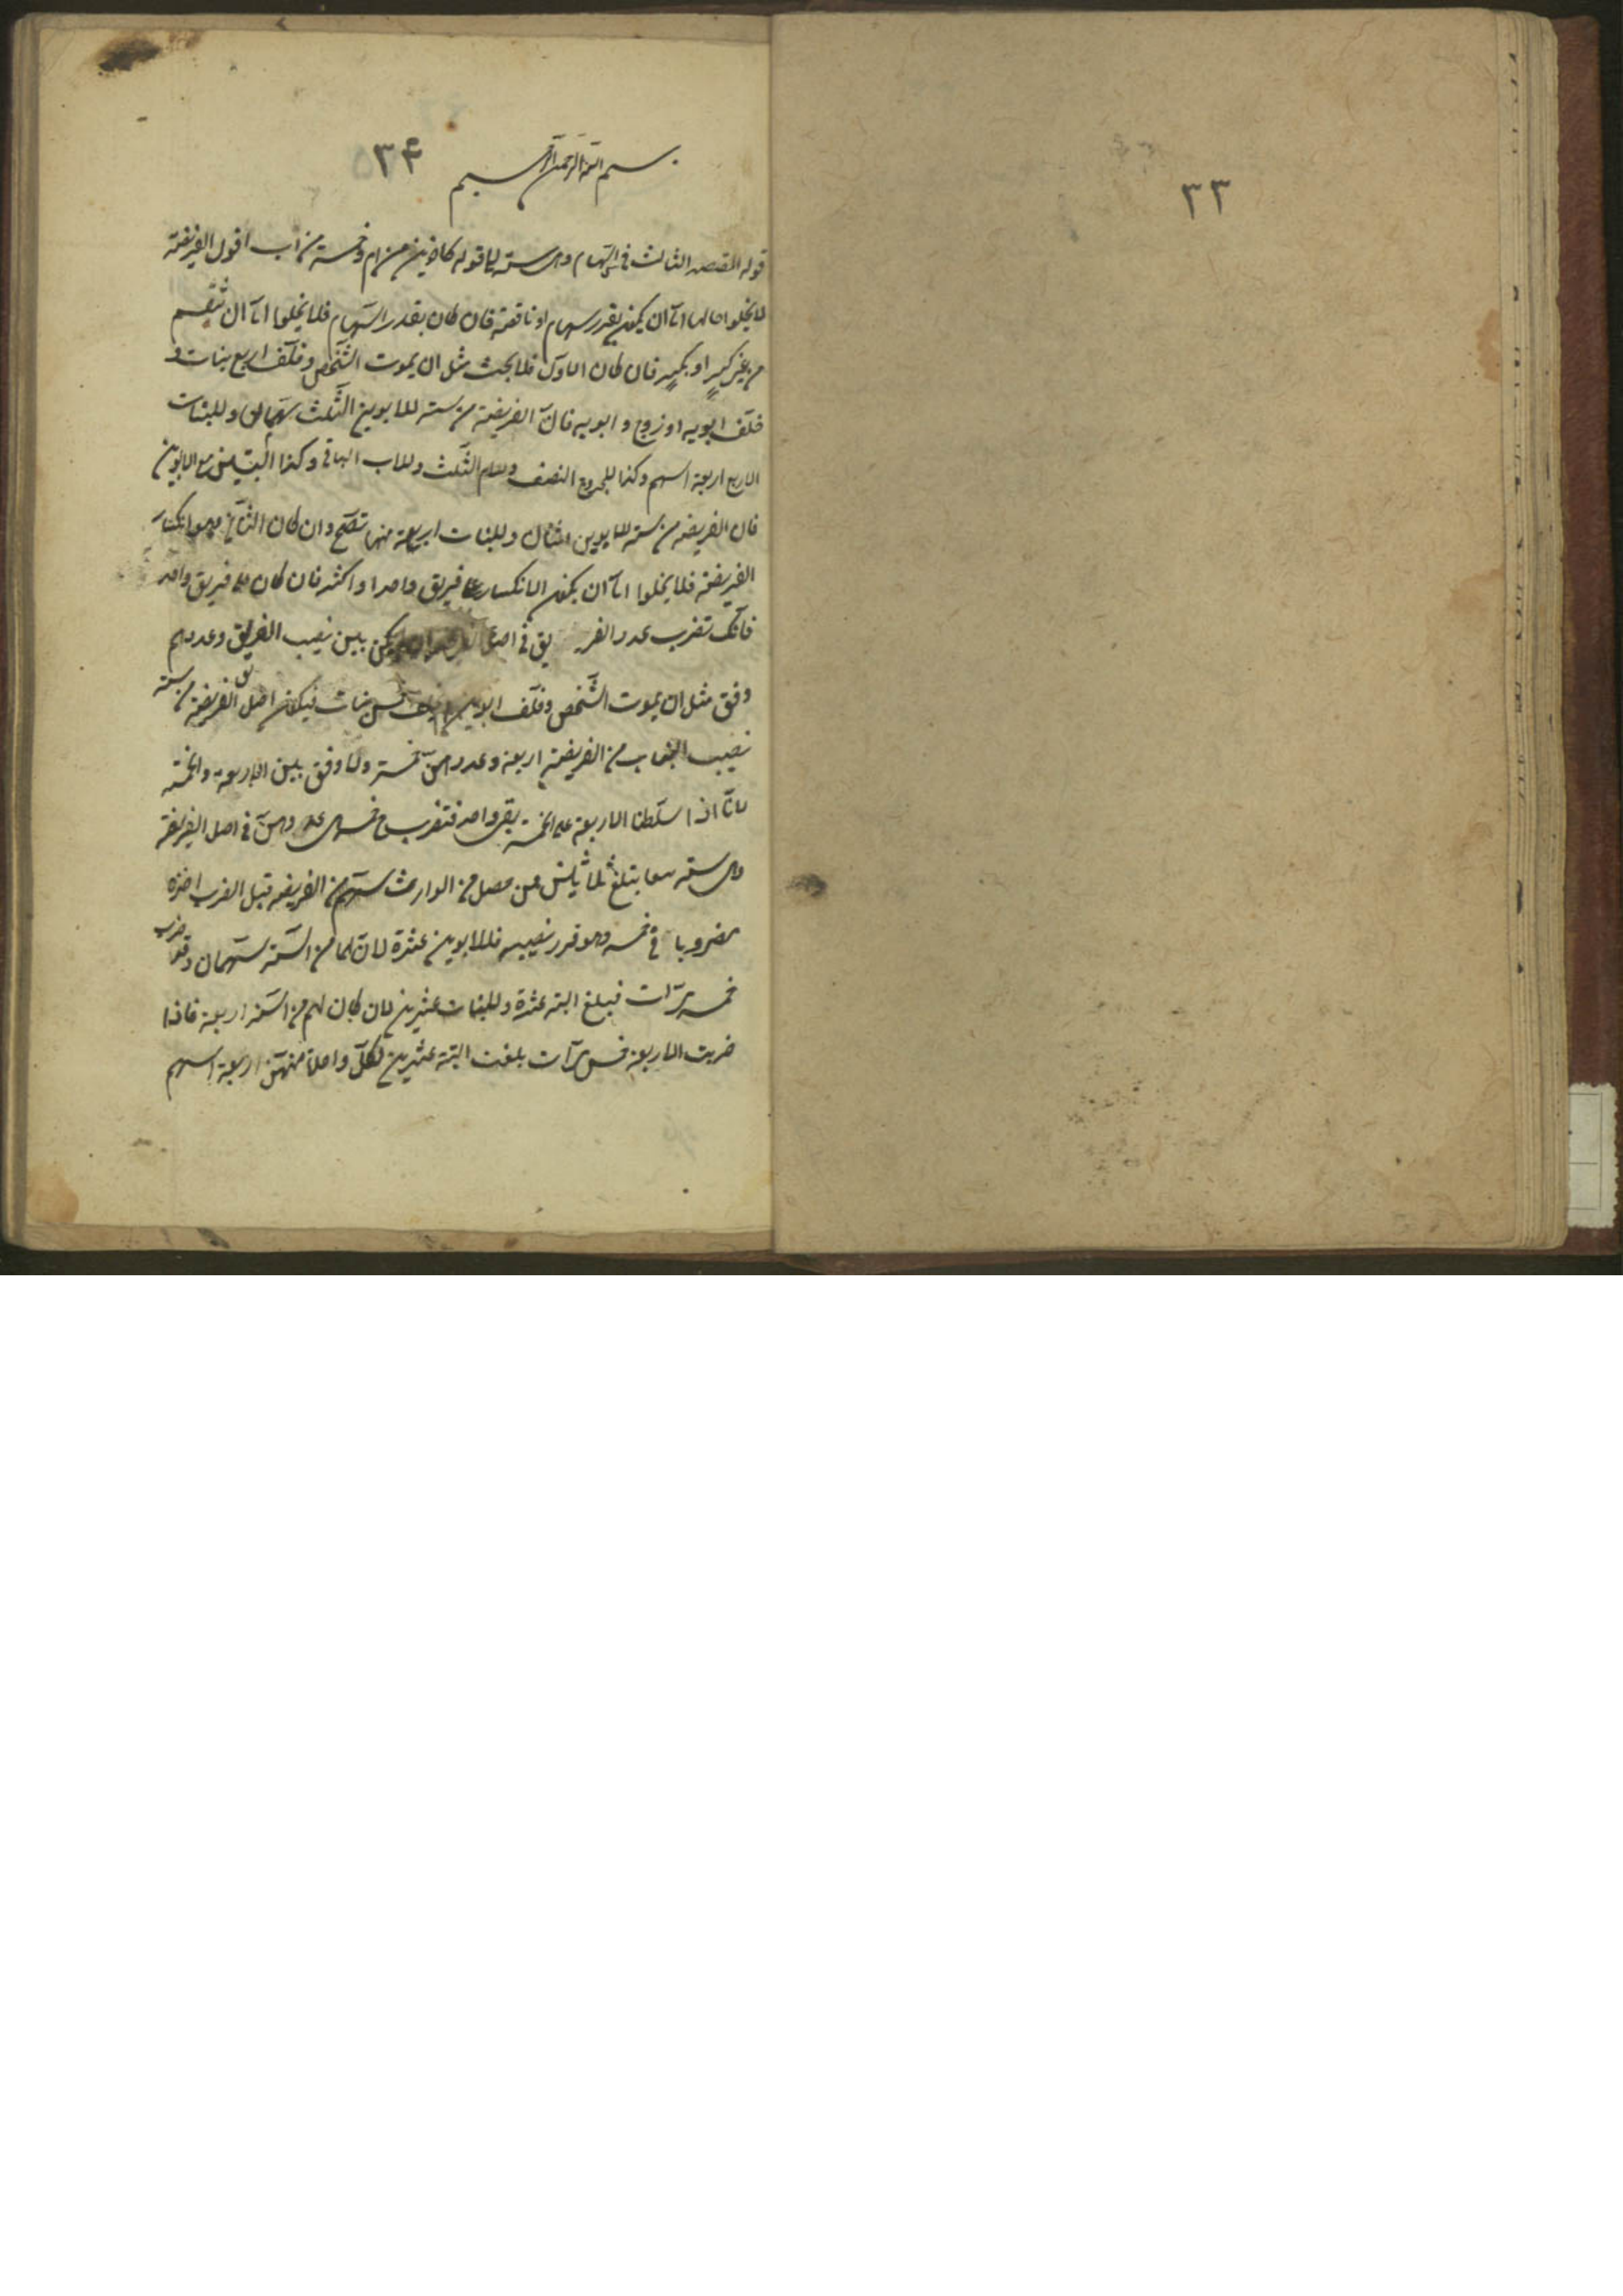 ٣٣
٣۴
بسم الله الرحمن الرحيم
قوله المقصد الثالث فى السهام وهى ستة الى قوله كاخوين من ام وخمسة من اب اقول الفريضة
لا يخلوا حالها اما ان يكون بقدر سهام او ناقصة فان كان بقدر السهام فلا يخلوا اما ان تنقسم
من غير كسر او بكسر فان كان الاول فلا بحث مثل ان يموت الشخص وخلف اربع بنات و
خلف ابويه او زوج و ابويه فان الفريضة من ستة للابوين الثلث سهمان وللبنات
الاربع اربعة اسهم وكذا للزوج النصف وللام الثلث وللاب الباقى وكذا البنتين مع الابوين
فان الفريضه من ستة للابوين اثنان وللبنات اربعة منها تصح وان كان الثانى وهو انكسار
الفريضة فلا يخلوا اما ان يكون الانكسار على فريق واحد او اكثر فان كان على فريق واحد
فانك تضرب عدد الفريق فى اصل الفريضة ان لم يكن بين نصيب الفريق وعددهم
وفق مثل ان يموت الشخص وخلف ابوين وخمس بنات فيكون اصل الفريضة من ستة
نصيب البنات من الفريضة اربعة وعددهن خمسة ولا وفق بين الاربعة والخمسة
لانا اذا اسقطنا الاربعة على الخمسة بقى واحد فتضرب خمس عددهن فى اصل الفريضة
وهى ستة تبلغ ثلاثين فمن حصل من الوارث سهم من الفريضه قبل الضرب اخذه
مضروبا فى خمسه وهو قدر نصيبه فللابوين عشرة لان لهما من الستة سهمان وقد ضرب
خمس مرات فبلغ البتة عشرة وللبنات عشرين لان كان لهم من الستة اربعة فاذا
ضربت الاربعة خمس مرات بلغت البتة عشرين لكل واحدة منهن اربعة اسهم